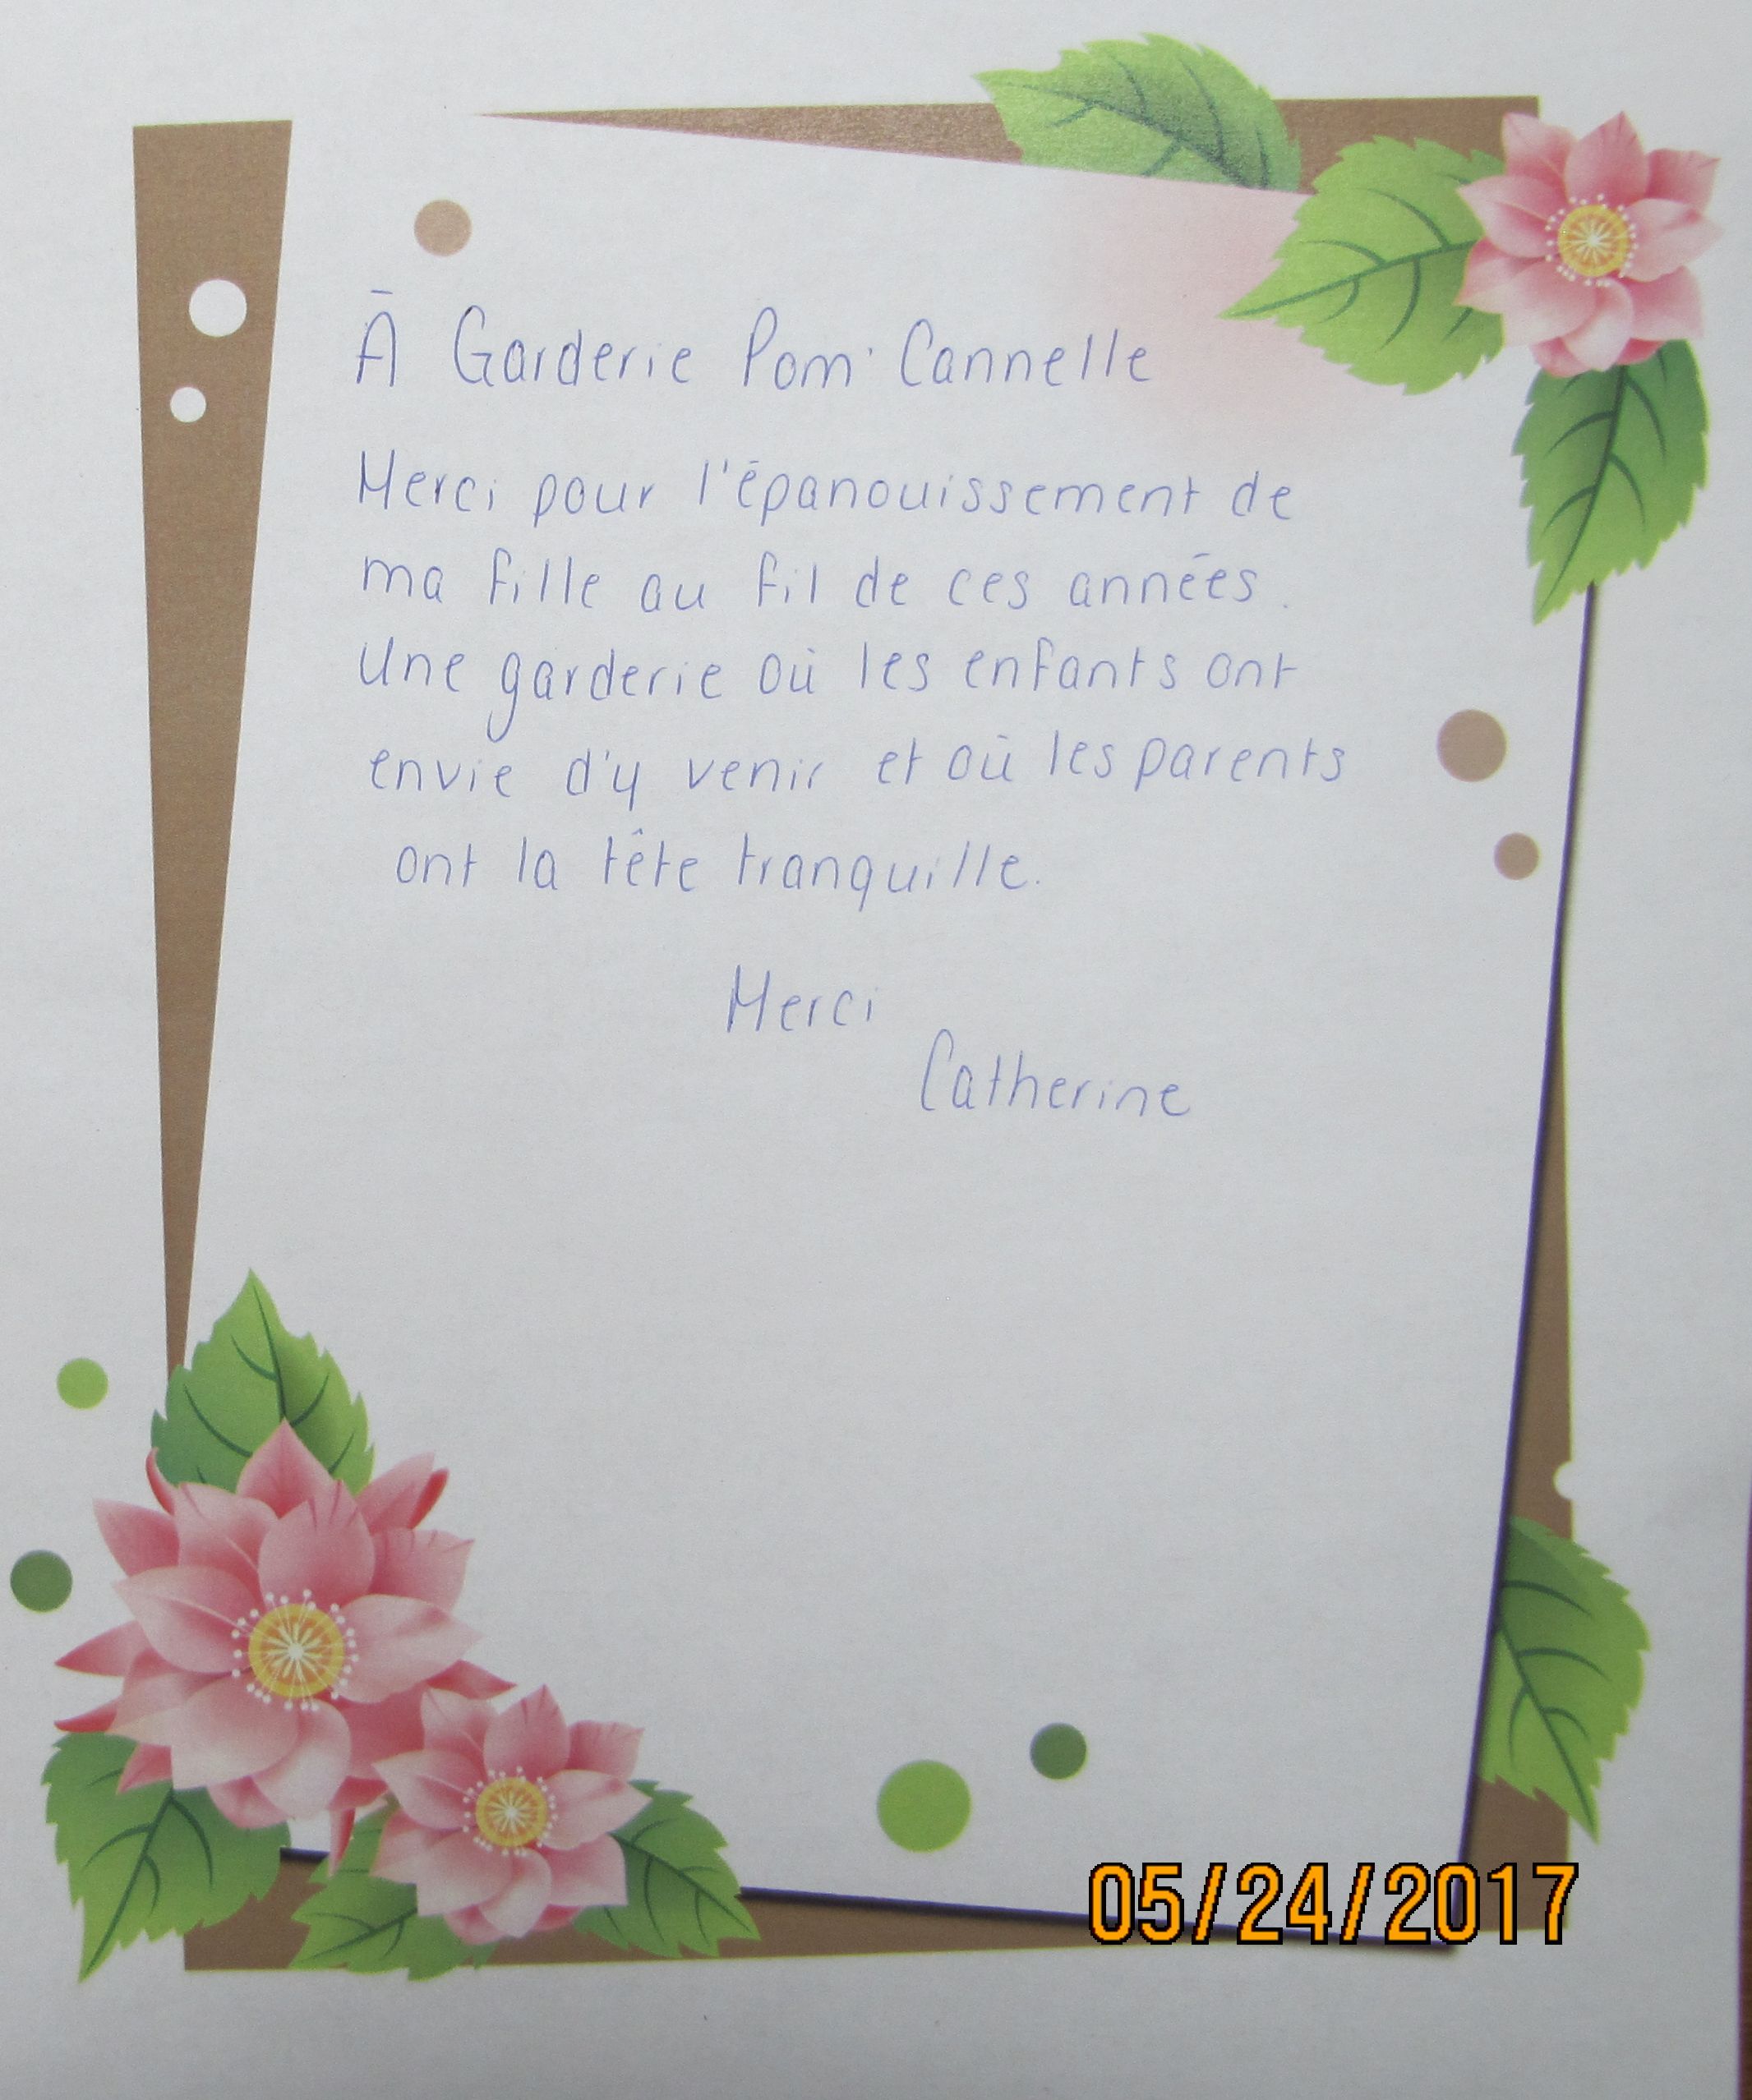 À Garderie Pom' Cannelle
Merci pour l'épanouissement de
ma fille au fil de ces années.
Une garderie où les enfants ont
envie d'y venir et où les parents
ont la tête tranquille.
Merci
Catherine
05/24/2017